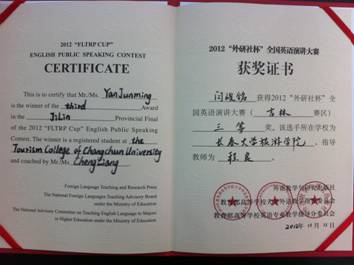 2012 "FLTRP CUP"
ENGLISH PUBLIC SPEAKING CONTEST
CERTIFICATE
This is to certify that Mr./Ms. YanJunming
is the winner of the third Award
in the JiLin Provincial Final
of the 2012 "FLTRP Cup" English Public Speaking
Contest. The winner is a registered student at the
Tourism College of Changchun University
and coached by Mr./Ms. ChengLiang
Foreign Language Teaching and Research Press
The National Foreign Language Teaching Advisory Board
under the Ministry of Education
The National Advisory Committee on Teaching English to Majors
in Higher Education under the Ministry of Education
2012 "外研社杯" 全国英语演讲大赛
获奖证书
闫峻铭 获得2012 "外研社杯" 全
国英语演讲大赛 ( 吉林 赛区)
三 等 奖。该选手所在学校为
长春大学旅游学院 , 指导
教师为 程良 。
外语教学与研究出版社
教育部高等学校大学外语教学指导委员会
教育部高等学校英语专业教学指导分委员会
2012年 11月 11日